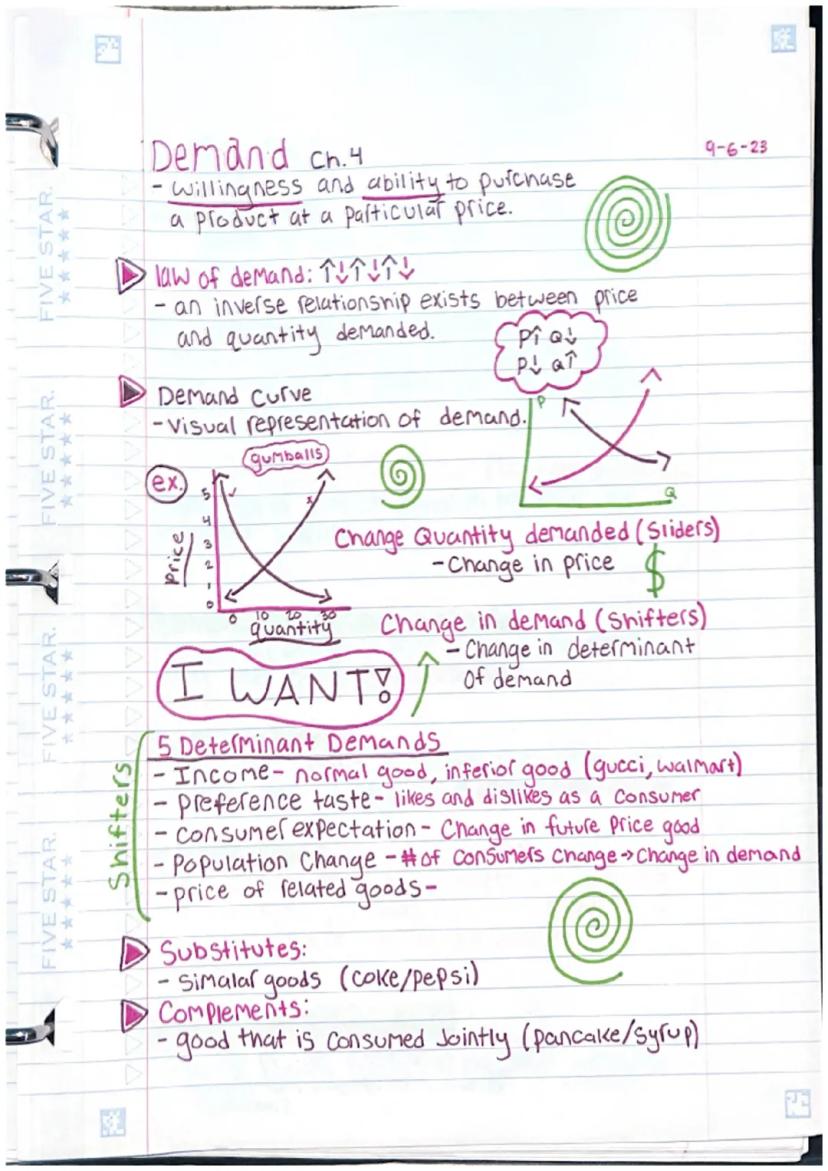 Demand Ch.4
9-6-23
- Willingness and ability to purchase
a product at a particular price.
law of demand: ↑↓↑↓↑↓
- an inverse relationship exists between price
and quantity demanded.
P↑ Q↓
P↓ Q↑
Demand Curve
- Visual representation of demand.
P
Q
ex.
gumballs
5
4
3
2
1
0
Price
0 10 20 30
quantity
Change Quantity demanded (Sliders)
- Change in price $
Change in demand (Shifters)
- Change in determinant
Of demand
I WANT!
Shifters
5 Determinant Demands
- Income - normal good, inferior good (gucci, walmart)
- Preference taste - likes and dislikes as a Consumer
- Consumer expectation - Change in future Price good
- Population Change - # of Consumers Change → Change in demand
- price of related goods -
Substitutes:
- Simalar goods (Coke/Pepsi)
Complements:
- good that is Consumed Jointly (Pancake/Syrup)
FIVE STAR.
FIVE STAR.
FIVE STAR.
FIVE STAR.